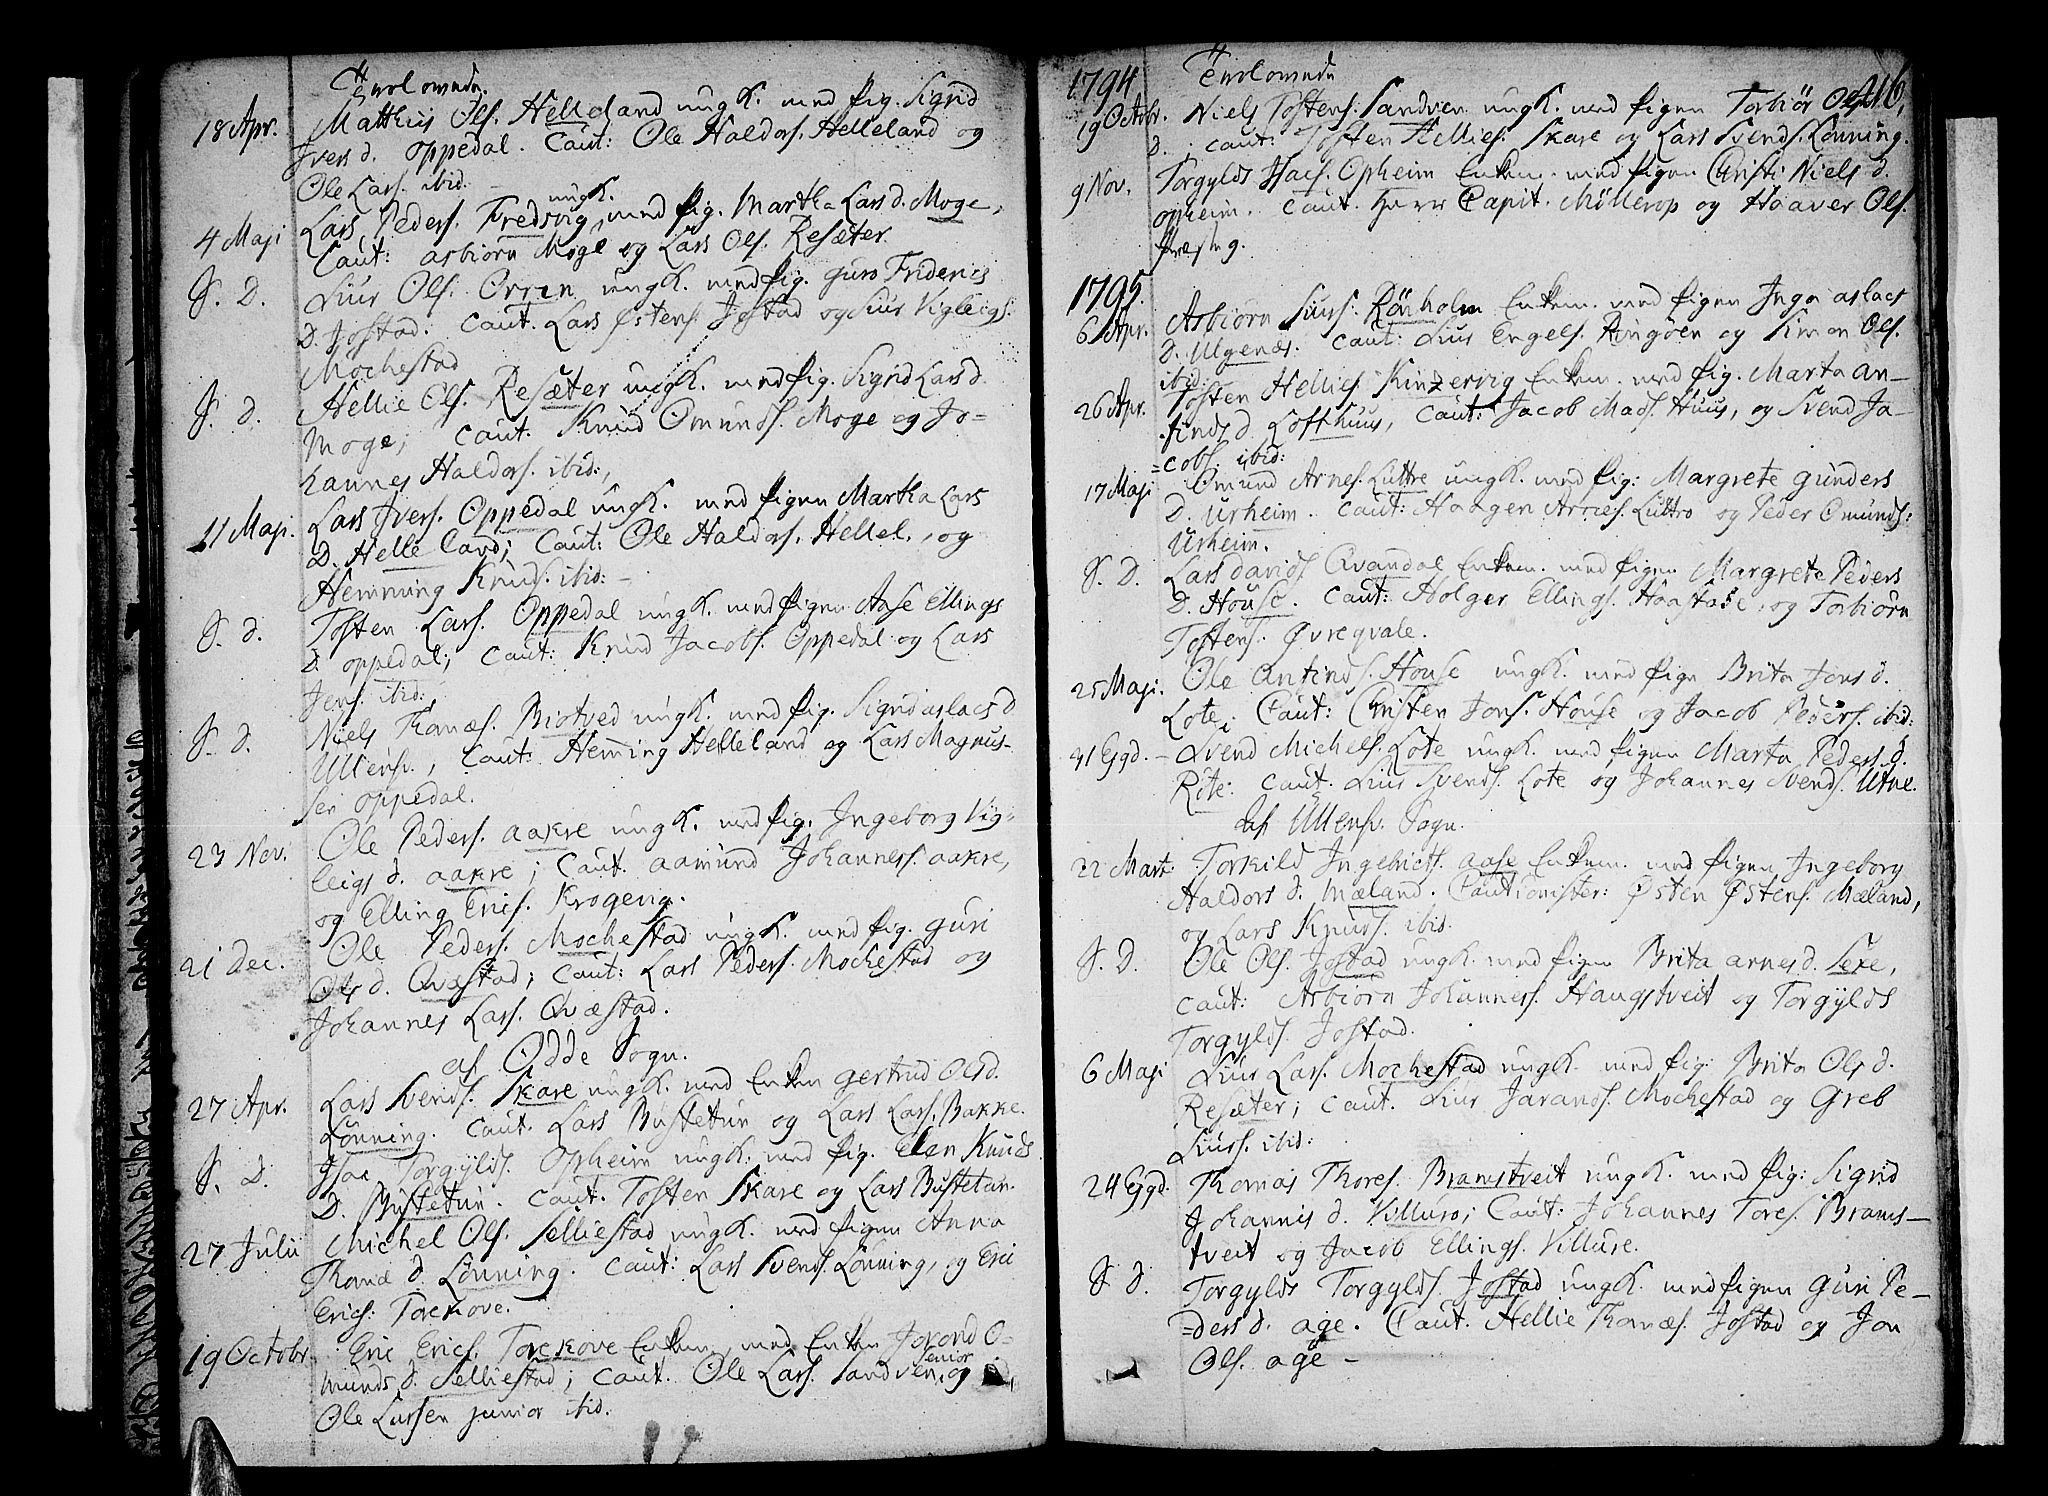 Trolovede.
18 Apr. Matthis Ols. Helleland ungk. med pig. Sigrid
Ivers d. Oppedal. Caut: Ole Haldors. Helleland og
Ole Lars. ibid. –
ungk.
4 Maji Lars Peders. Fredsvig, med pig. Martha Lars d. Moge,
Caut: Asbiörn Moge og Lars Ols. Resæter.
S. D. Siur Ols. Orren ungk. med pig. Guro Friderics
D. Jostad. Caut. Lars Østens. Jostad og Siur Vigleigs.
Mochestad
S. d. Hellie Ols. Resæter ungk. med pig. Sigrid Lars d.
Moge; Caut. Knud Omunds. Moge og Jo=
hannes Haldors. ibid:,
11 Maji. Lars Ivers. Oppedal ungk. med pigen Martha Lars
D. Helleland; Caut: Ole Haldors. Hellel., og
Hemming Knuds. ibid: –
S. d. Tosten Lars. Oppedal ungk. med pigen Aase Ellings
D. Oppedal; Caut: Knud Jacobs. Oppedal og Lars
Jens. ibid:
S. d. Niels Thomæs. Biotved ungk. med pig. Sigrid Aslacs D
Ullensv., Caut: Hemming Helleland og Lars Magnus-
sen Oppedal.
23 Nov. Ole Peders. Aakre ungk. med pig. Ingeborg Vig=
leigs d. Aakre; Caut. Aamund Johanness. Aakre,
og Elling Erics. Krogeng.
21 Dec. Ole Peders. Mochestad ungk. med pig. Guri
Ols d. Qvæstad; Caut: Lars Peders. Mochestad og
Johannes Lars. Qvæstad.
af Odde Sogn.
27 Apr. Lars Svends. Skare ungk. med Enken Gertrud Olsd.
Lönning. Caut. Lars Bustetun og Lars Lars. Bakke.
S. D. Isac Torgylds. Opheim ungk. med pig. Elen Knuds
D. Bustetun. Caut. Tosten Skare og Lars Bustetun.
27 Julii Michel Ols. Selliestad ungk. med pigen Anna
Thomæ d. Lönning. Caut: Lars Svends. Lönning, og Eric
Erics. Torekove.
19 Octobr. Eric Erics. Torekove Enkem. med Enken Jorond O=
munds d. Selliestad; Caut. Ole Lars. Sandven senior, og
Ole Larsen junior ibid.
1794 Trolovede 216.
19 Octobr. Niels Tostens. Sandven ungk. med pigen Torbiör Ols
D. Caut: Tosten Hellies. Skare og Lars Svends. Lönning.
9 Nov. Torgylds Isacs. Opheim Enkem. med pigen Christi Niels d.
Opheim. Caut. Herr Capit. Möllerop og Haaver Ols.
1795.
6 Apr. Asbiörn Siurs. Rönholm Enkem. med pigen Inga Aslacs
D. Ulgenæs: Caut: Siur Engels. Ringöen og Simon Ols.
ibid:
26 Apr. Tosten Hellies. Kinzervig Enkem. med pig. Marta An-
finds d. Lofthuus, Caut: Jacob Mads. Huus, og Svend Ja-
=cobs. ibid:
17 Maji Omund Arnes. Luttro ungk. med pig: Margrete Gunders
D. Urheim. Caut: Haagen Arnes. Luttro og Peder Omunds:
Urheim.
S. D. Lars Davids. Qvandal Enkem. med pigen Margrete Peders
D. House. Caut: Holger Ellings. Haastabe, og Torbiörn
Tostens. Øvreqvale.
25 Maji. Ole Antinds. House ungk. med pign Brita Jons d.
Lote; Caut: Christen Jons. House og Jacob Peders. ibid:
31 Ejgd. – Svend Michels. Lote ungk. med pigen Marta Peders d.
Rote: Caut. Siur Svends. Lote og Johannes Svends. Utne.
af Ullensv. Sogn.
22 Mart. Torkild Ingebrictss. Aase Enkem. med pigen Ingeborg
Haldors d. Mæland. Cautionister: Østen Østens. Mæland,
og Lars Knuds. ibid.
S. D. Ole Ols. Jostad ungk. med pigen Brita Arnes d. Sexe,
Caut: Asbiörn Johanness. Haugstveit og Torgylds
Torgylds. Jostad.
6 Maji Siur Lars. Mochestad ungk. med pig: Brita Ols d.
Resæter; Caut. Siur Jarands. Mochestad og Greb
Siurs. ibid:
24 Ejgd. Thomas Thores. Bramstveit ungk. med pig: Sigrid
Johannis d. Villure; Caut: Johannes Tores. Brams-
tveit og Jacob Ellings. Villure.
S. d. Torgylds Torgylds. Jostad ungk. med pigen Guri Pe-
=ders d. Age. Caut. Hellie Thomæs. Jostad og Jon
Ols. Age –